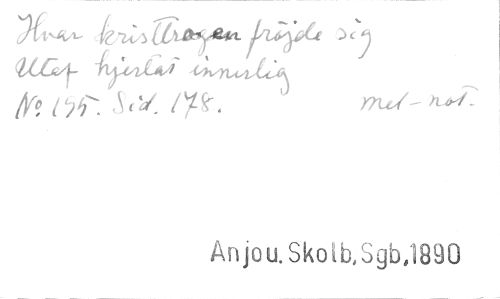 Hvar kristtrogen fröjde sig
Utaf hjertat innerlig
No 155. Sid. 178. mel-not.
Anjou, Skolb, Sgb, 1890